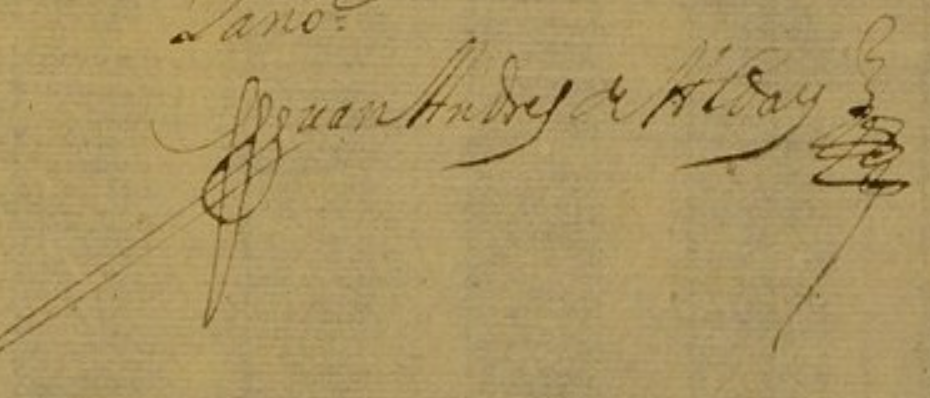 Lano:
Juan Andres de Alday